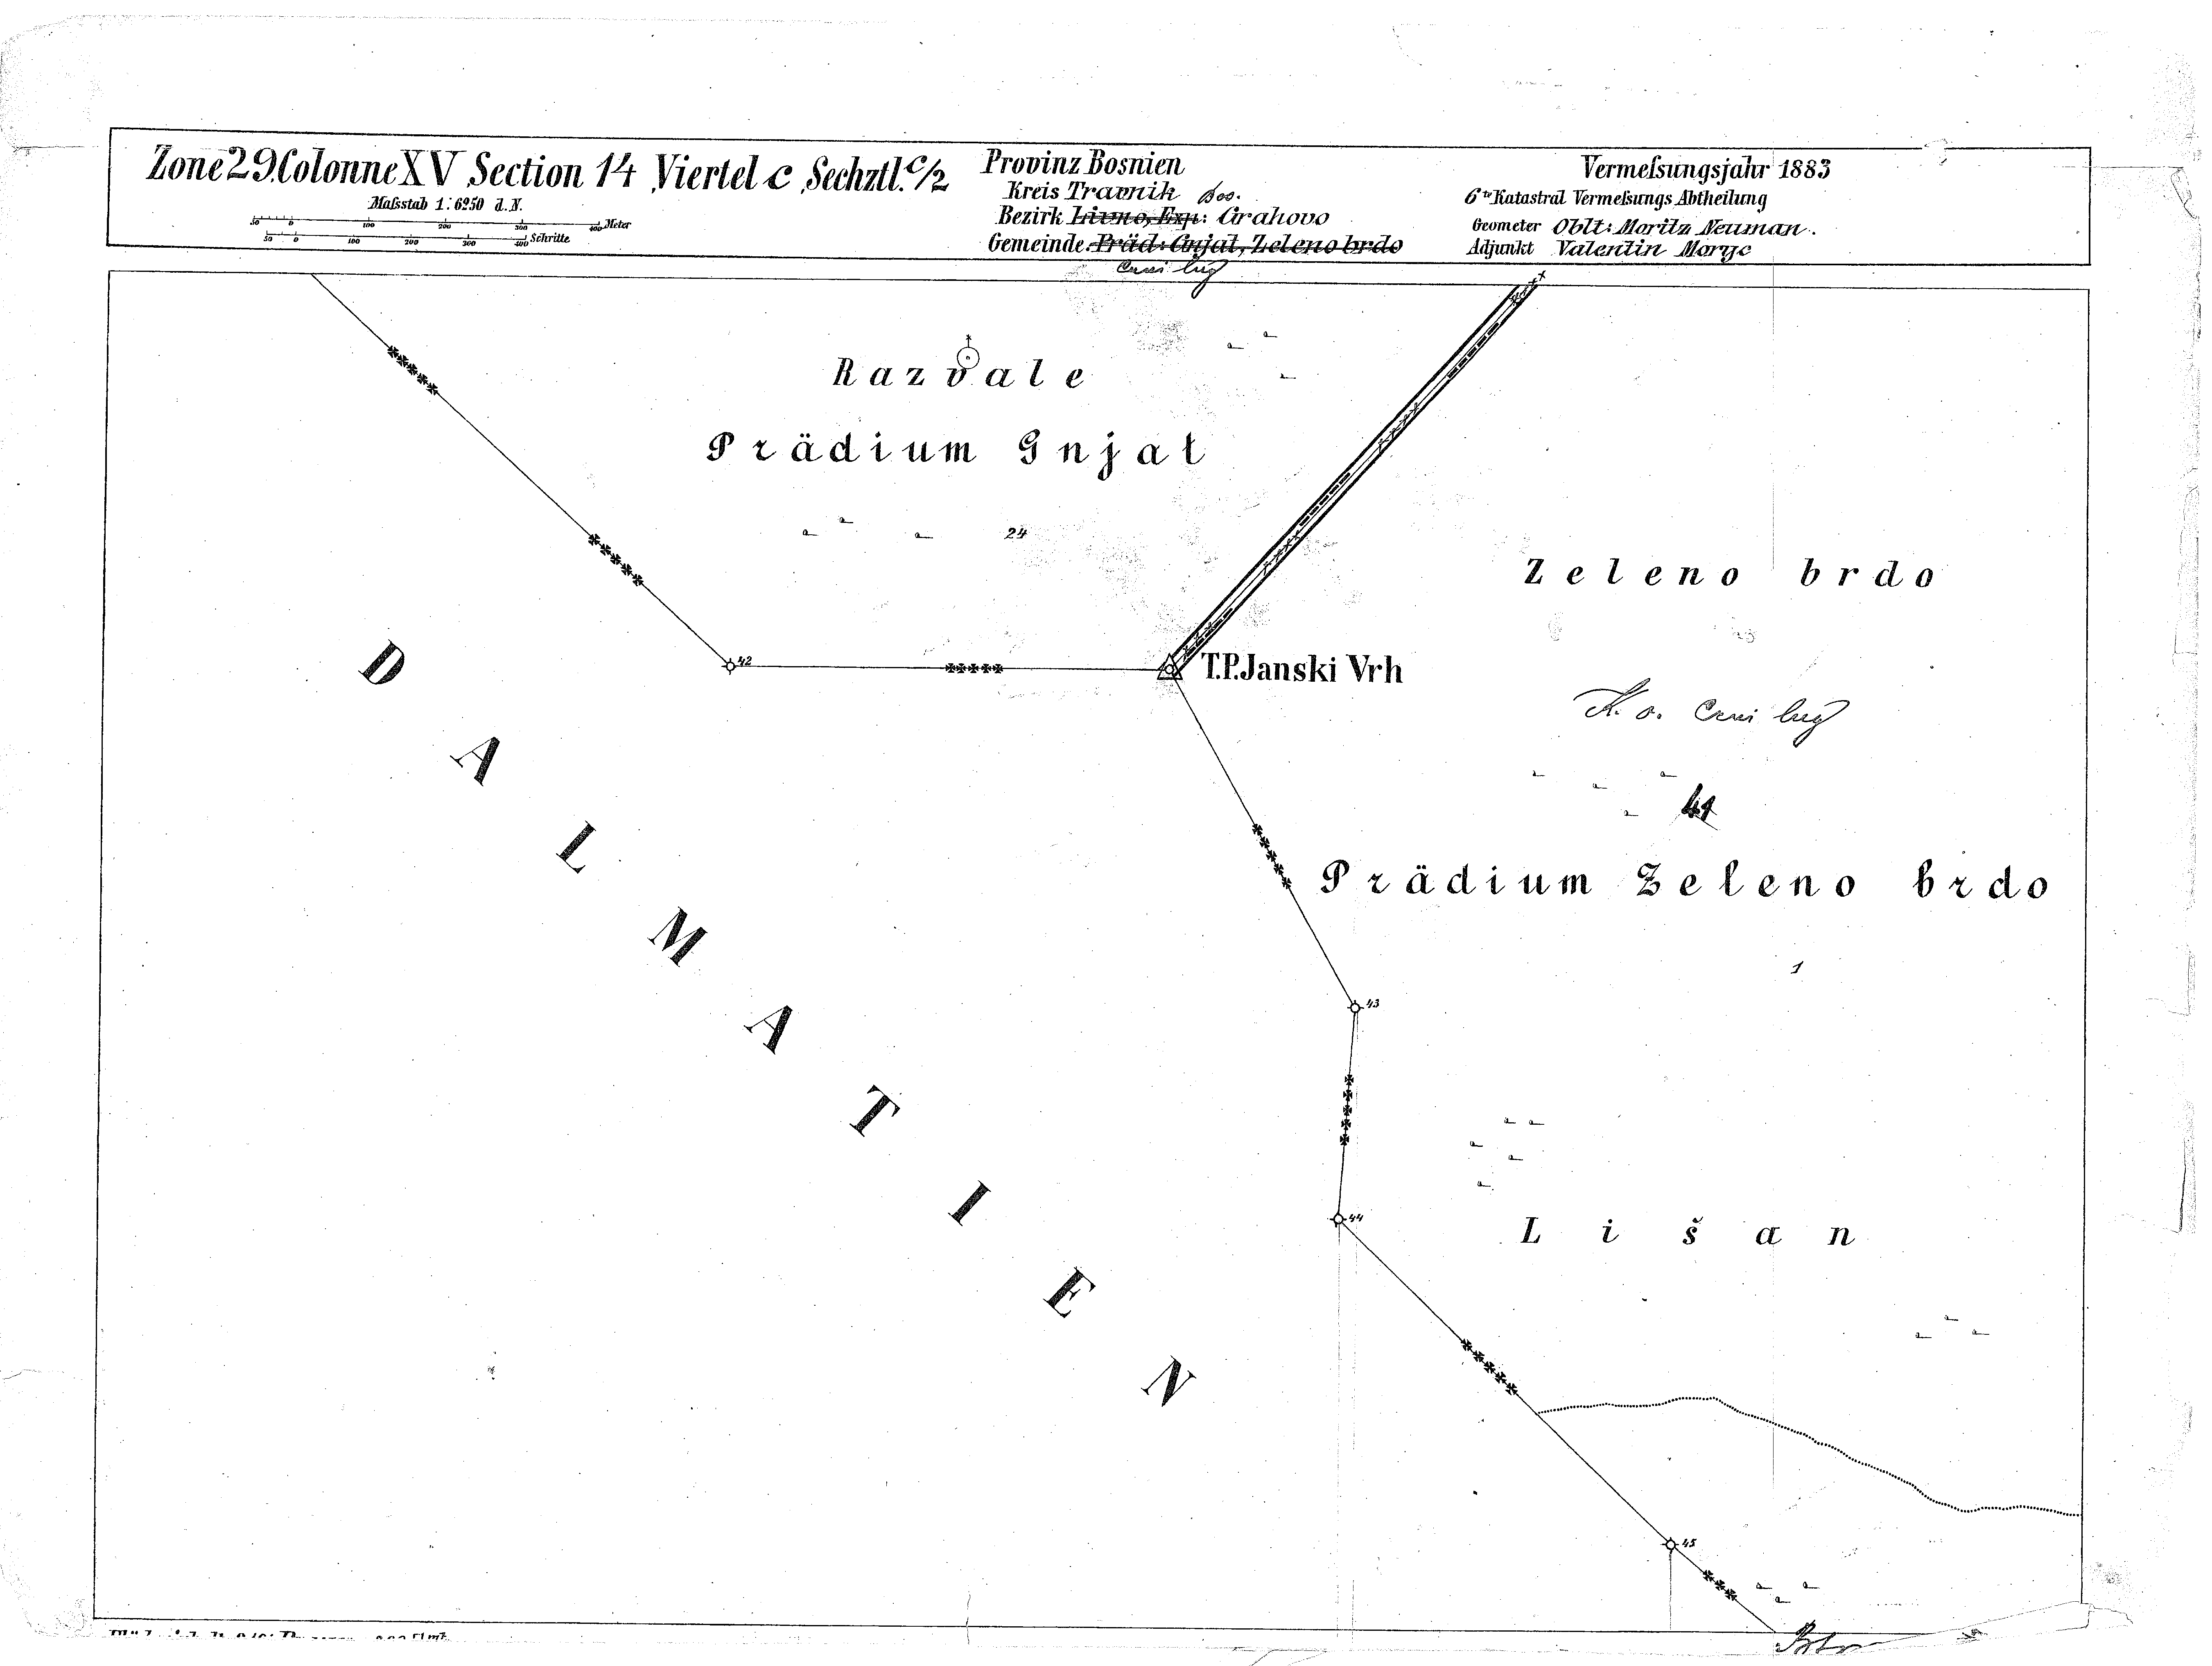 Zone 29. Colonne XV Section 14 Viertel c Sechztl. c/2
Maßstab 1:6250 d. N.
50 0 100 200 300 400 Meter
50 0 100 200 300 400 Schritte
Provinz Bosnien
Kreis Travnik Bos.
Bezirk Livno, Exp: Grahovo
Gemeinde: Präd: Gnjat, Zeleno brdo
Crni lug
Vermeßungsjahr 1883
6te Katastral Vermeßungs Abtheilung
Geometer Oblt: Moritz Neuman.
Adjunkt Valentin
Razvale
Prädium Gnjat
24
Zeleno brdo
42
T.P. Janski Vrh
K. o. Crni lug
DALMATIEN
Prädium Zeleno brdo
1
43
44
Lišan
45